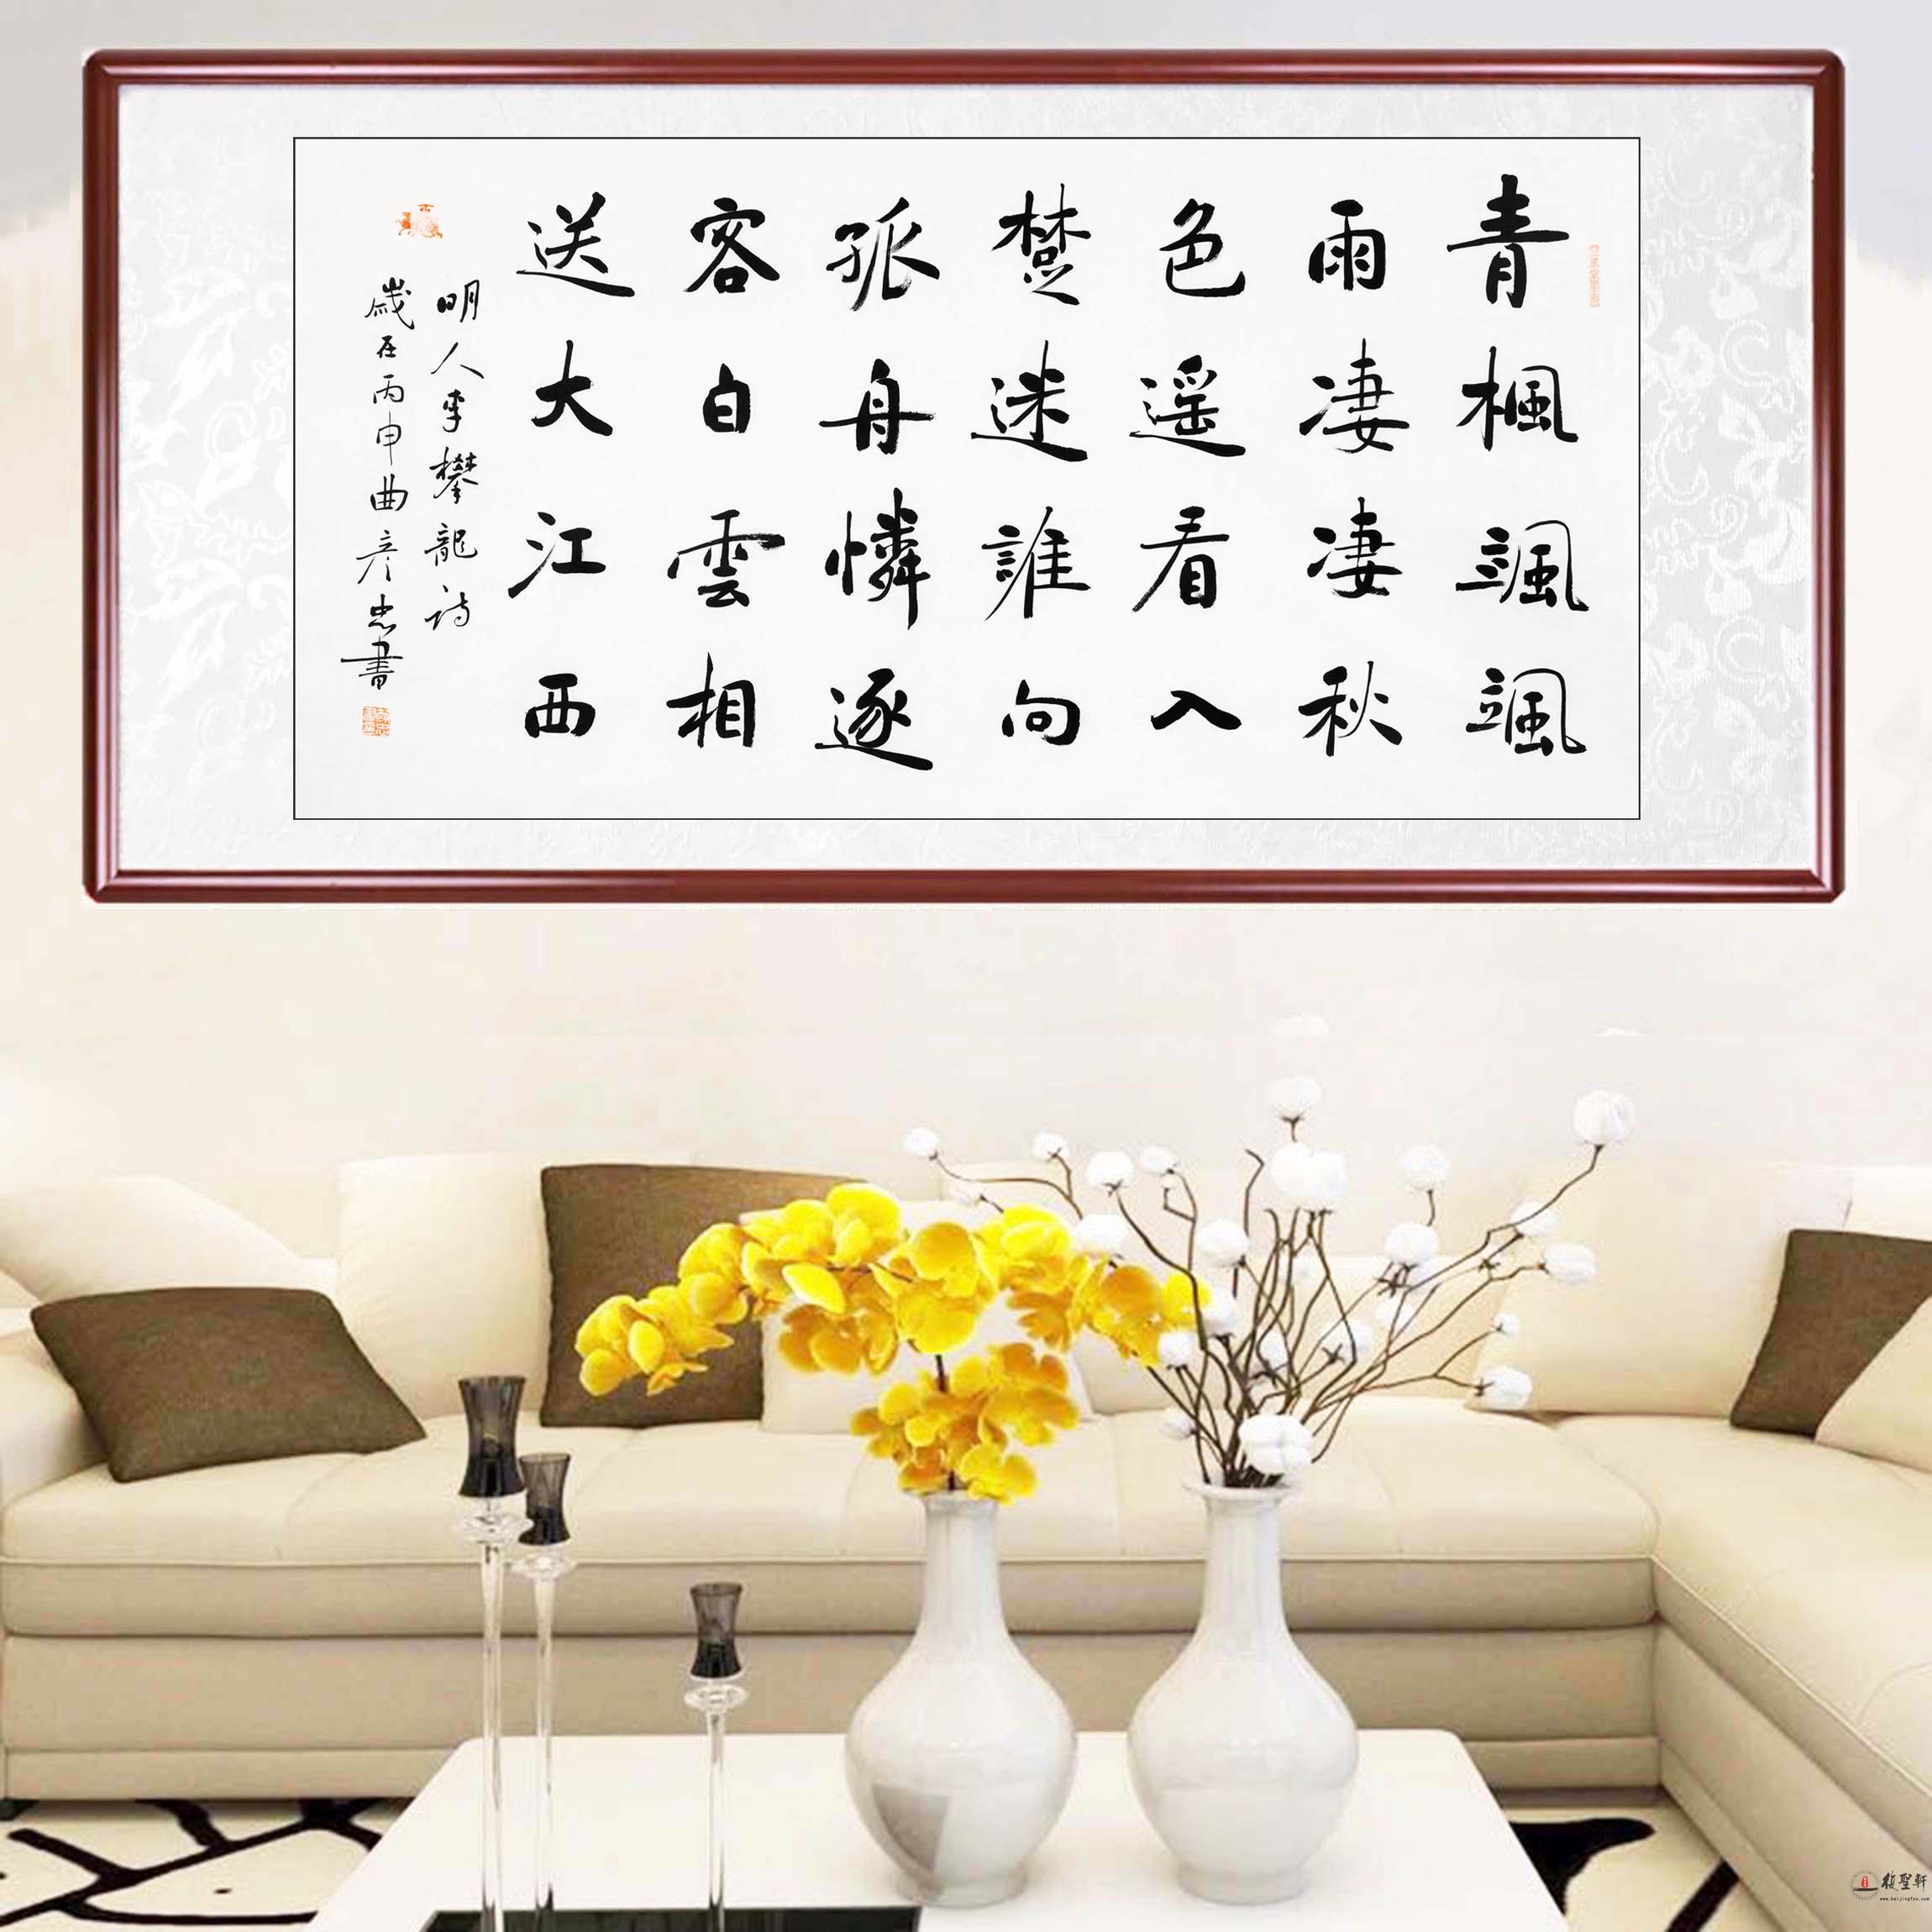 青楓颯颯
雨凄凄秋
色遥看入
楚迷誰向
孤舟憐逐
客白雲相
送大江西
明人李攀龍詩
歲在丙申曲彦忠書
復聖軒